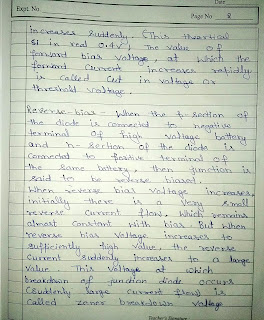 Date
Expt. No.
Page No. 8
increases suddenly (This
Si in red 0.4V). The value of
forward bias voltage, at which the
forward current increases rapidly
is called Cut in voltage or
threshold voltage.
Reverse-bias - When the p-section of
the diode is connected to negative
terminal of high voltage battery
and n-section of the diode is
connected to positive terminal of
the same battery, then junction is
said to be reverse biased.
When reverse bias voltage increases
initially there is a very small
reverse current flow, which remains
almost constant with bias. But when
reverse bias voltage increases to
sufficiently high value, the reverse
current suddenly increases to a large
value. This voltage at which
breakdown of junction diode occurs
(suddenly large current flow) is
called zener breakdown voltage
Teacher's Signature